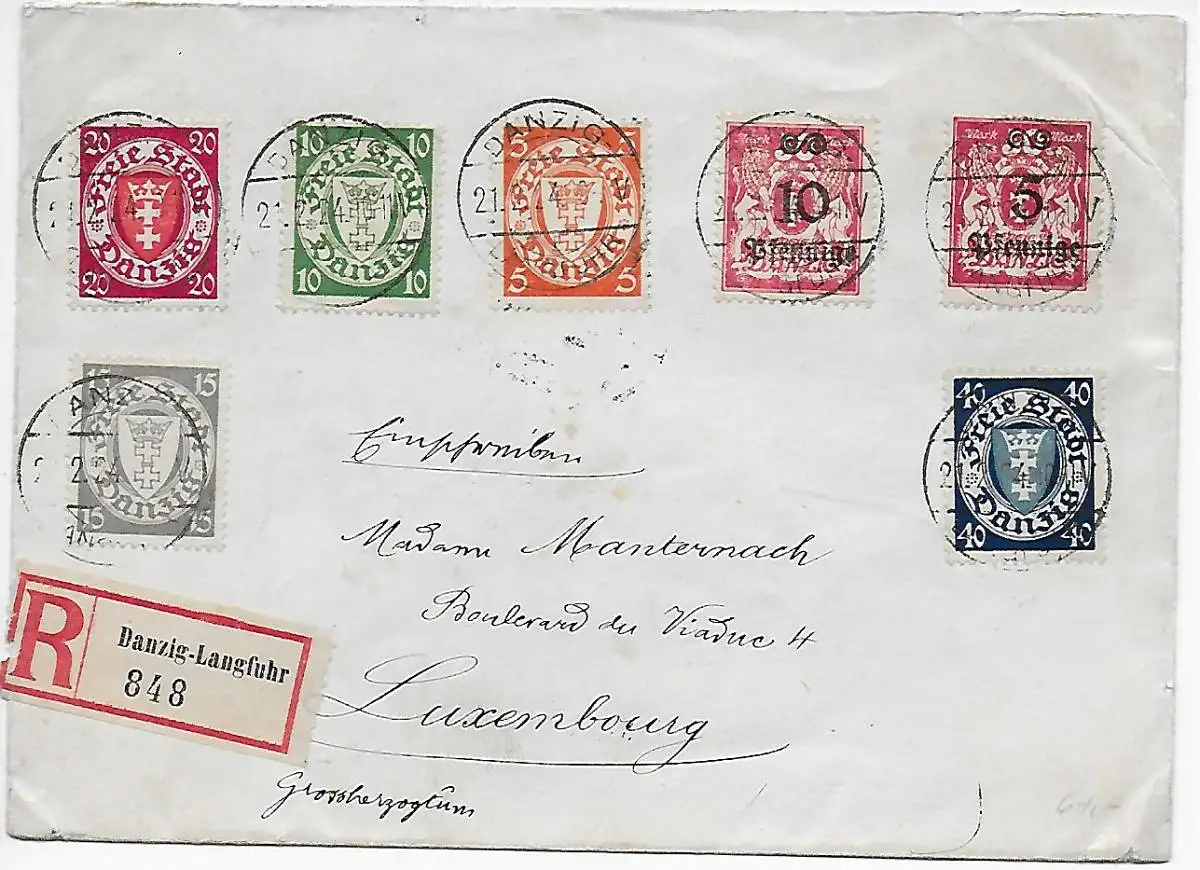 20 20
Freie Stadt
Danzig
20 20
10 10
Freie Stadt
Danzig
10 10
5 5
Freie Stadt
Danzig
5 5
Mark
10
Pfennige
Danzig
Mark Mark
5
Pfennige
DANZIG-
DANZIG-
15 15
Freie Stadt
Danzig
15 15
40 40
Freie Stadt
Danzig
40 40
Einschreiben
Madame Manternach
Boulevard du Viaduc 4
Luxembourg
Grossherzogtum
R
Danzig-Langfuhr
848